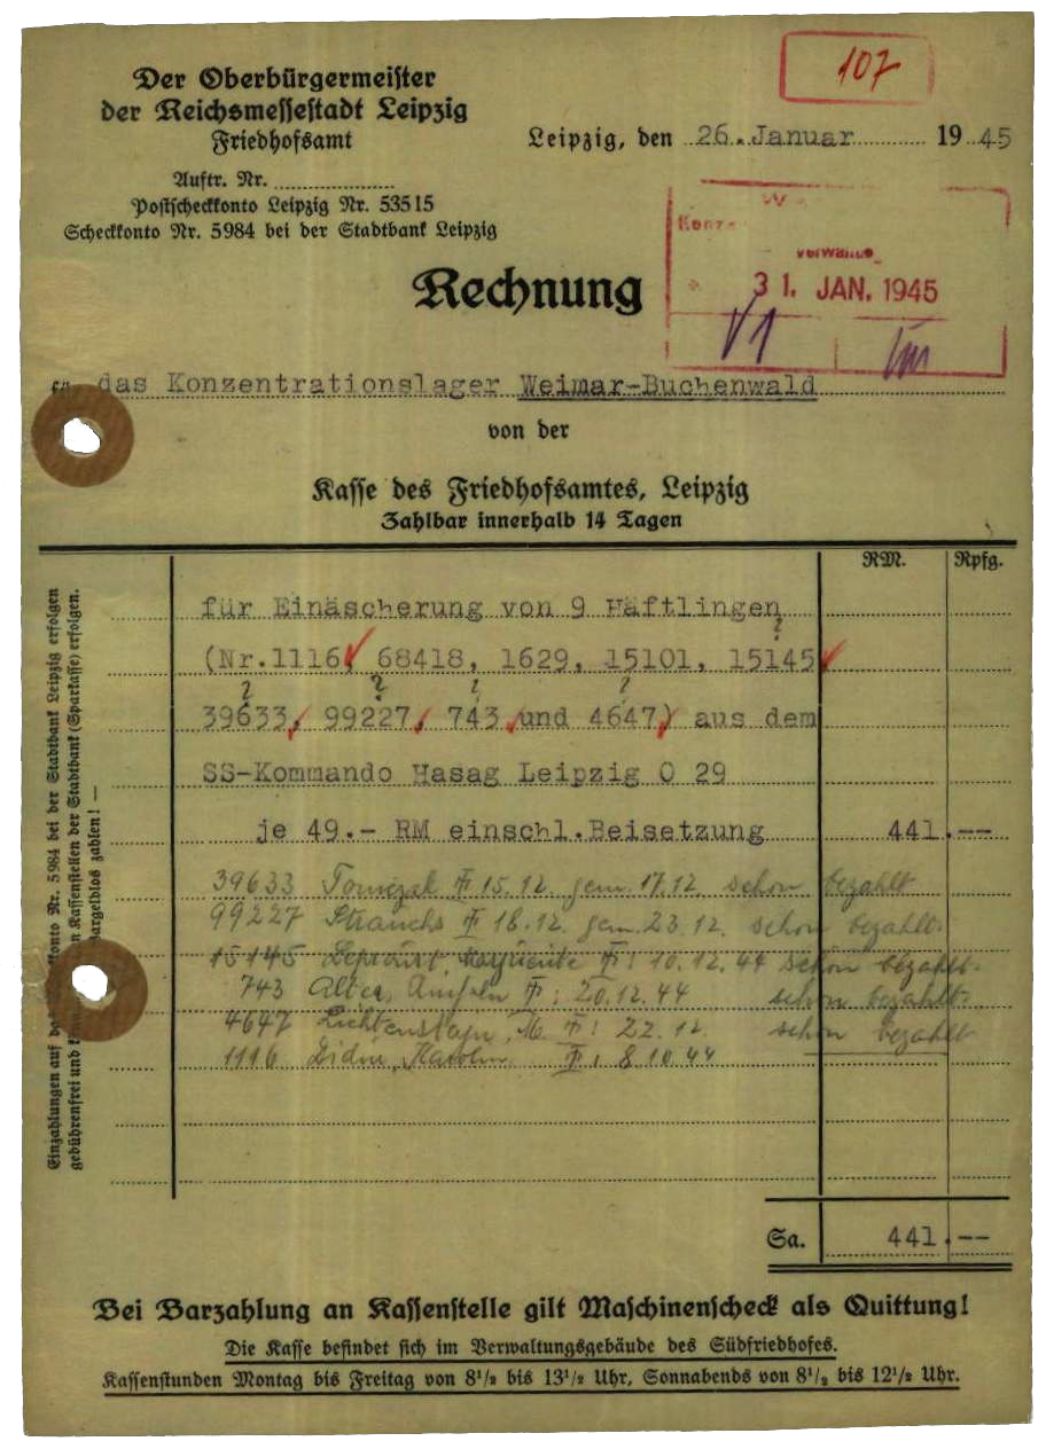 107
Der Oberbürgermeister
der Reichsmessestadt Leipzig
Friedhofsamt
Leipzig, den 26. Januar 1945
Auftr. Nr.
Postscheckkonto Leipzig Nr. 53515
Scheckkonto Nr. 5984 bei der Stadtbank Leipzig
31. JAN. 1945
Rechnung
das Konzentrationslager Weimar-Buchenwald
von der
Kasse des Friedhofsamtes, Leipzig
Zahlbar innerhalb 14 Tagen
RM. Rpfg.
für Einäscherung von 9 Häftlingen
(Nr.1116, 68418, 1629, 15101, 15145
39633, 99227, 743, und 4647) aus dem
SS-Kommando Hasag Leipzig O 29
je 49.- RM einschl.Beisetzung 441.--
39633 15.12. gem. 17.12. schon bezahlt
99227 Strauchs 18.12. gem. 23.12. schon bezahlt.
15145 10.12.44 schon bezahlt.
743 20.12.44 schon bezahlt.
4647 M. 22.12. schon bezahlt
1116 8.10.44
Einzahlungen auf Konto Nr. 5984 bei der Stadtbank Leipzig erfolgen
gebührenfrei und Kassenstellen der Stadtbank (Sparkasse) erfolgen.
bargeldlos zahlen! —
Sa. 441.--
Bei Barzahlung an Kassenstelle gilt Maschinenscheck als Quittung!
Die Kasse befindet sich im Verwaltungsgebäude des Südfriedhofes.
Kassenstunden Montag bis Freitag von 8½ bis 13½ Uhr, Sonnabends von 8½ bis 12½ Uhr.